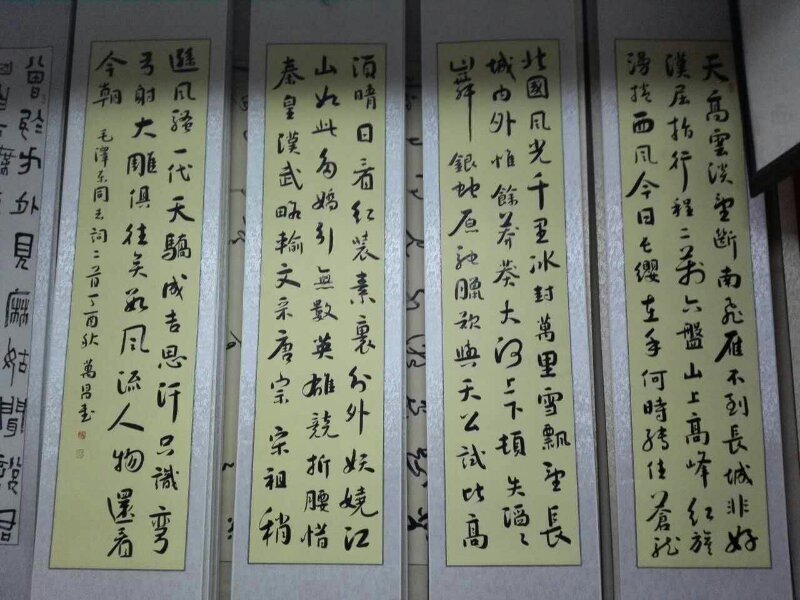 天高雲淡望斷南飛雁不到長城非好
漢屈指行程二萬六盤山上高峰紅旗
漫捲西風今日长纓在手何時縛住蒼龍
北國風光千里冰封萬里雪飄望長
城内外惟餘莽莽大河上下頓失滔々
山舞銀蛇原馳臘欲與天公試比高
須晴日看紅裝素裹分外妖嬈江
山如此多嬌引無數英雄競折腰惜
秦皇漢武略輸文采唐宗宗祖稍
遜風騷一代天驕成吉思汗只識彎
弓射大雕俱往矣數風流人物還看
今朝 毛澤東同志詞二首丁酉秋 萬昌書
曾於方外見麻姑聞說君